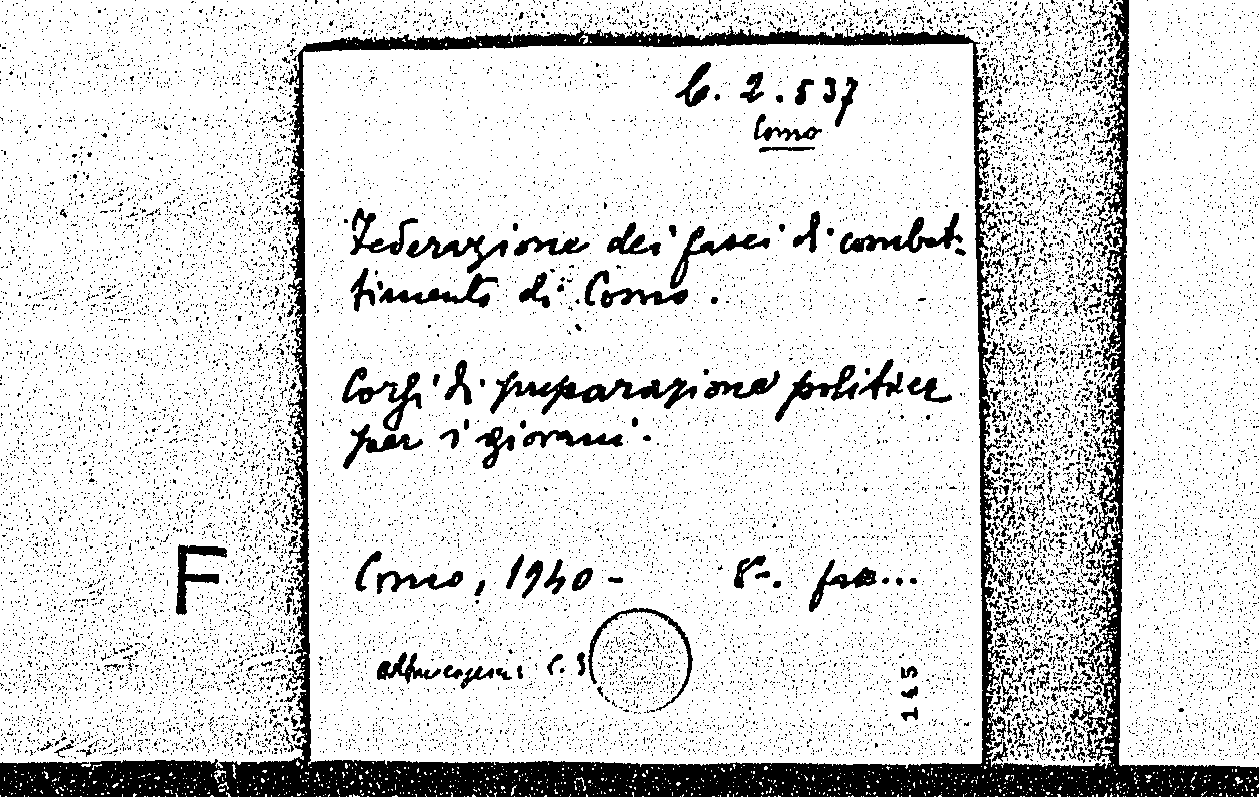 C. 2. 537
Como
Federazione dei fasci di combat-
timento di Como.
Corsi di preparazione politica
per i giovani.
F
Como, 1940 - 8°. fasc...
C. S
145